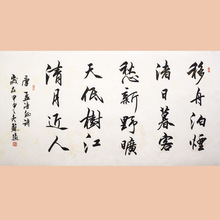 移舟泊煙
渚日暮客
愁新野曠
天低樹江
清月近人
唐孟浩然詩